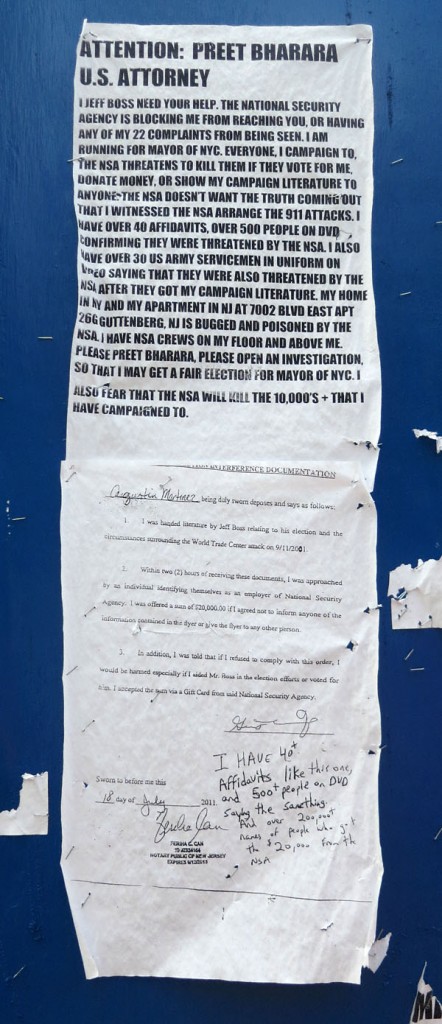 ATTENTION: PREET BHARARA
U.S. ATTORNEY
I JEFF BOSS NEED YOUR HELP. THE NATIONAL SECURITY
AGENCY IS BLOCKING ME FROM REACHING YOU, OR HAVING
ANY OF MY 22 COMPLAINTS FROM BEING SEEN. I AM
RUNNING FOR MAYOR OF NYC. EVERYONE, I CAMPAIGN TO,
THE NSA THREATENS TO KILL THEM IF THEY VOTE FOR ME,
DONATE MONEY, OR SHOW MY CAMPAIGN LITERATURE TO
ANYONE. THE NSA DOESN'T WANT THE TRUTH COMING OUT
THAT I WITNESSED THE NSA ARRANGE THE 911 ATTACKS. I
HAVE OVER 40 AFFIDAVITS, OVER 500 PEOPLE ON DVD
CONFIRMING THEY WERE THREATENED BY THE NSA. I ALSO
HAVE OVER 30 US ARMY SERVICEMEN IN UNIFORM ON
VIDEO SAYING THAT THEY WERE ALSO THREATENED BY THE
NSA AFTER THEY GOT MY CAMPAIGN LITERATURE. MY HOME
IN NY AND MY APARTMENT IN NJ AT 7002 BLVD EAST APT
26G GUTTENBERG, NJ IS BUGGED AND POISONED BY THE
NSA. I HAVE NSA CREWS ON MY FLOOR AND ABOVE ME.
PLEASE PREET BHARARA, PLEASE OPEN AN INVESTIGATION,
SO THAT I MAY GET A FAIR ELECTION FOR MAYOR OF NYC. I
ALSO FEAR THAT THE NSA WILL KILL THE 10,000'S + THAT I
HAVE CAMPAIGNED TO.
INTERFERENCE DOCUMENTATION
Augustin Martinez being duly sworn deposes and says as follows:
1. I was handed literature by Jeff Boss relating to his election and the
circumstances surrounding the World Trade Center attack on 9/11/2001.
2. Within two (2) hours of receiving these documents, I was approached
by an individual identifying themselves as an employer of National Security
Agency. I was offered a sum of $20,000.00 if I agreed not to inform anyone of the
information contained in the flyer or give the flyer to any other person.
3. In addition, I was told that if I refused to comply with this order, I
would be harmed especially if I aided Mr. Boss in the election efforts or voted for
him. I accepted the sum via a Gift Card from said National Security Agency.
I HAVE 40+
Affidavits like this one,
and 500+ people on DVD
saying the samething.
And over 200,000+
names of people who got
th $20,000 from th
NSA
Sworn to before me this
18 day of July 2011.
CAN
NOTARY PUBLIC OF NEW JERSEY
EXPIRES